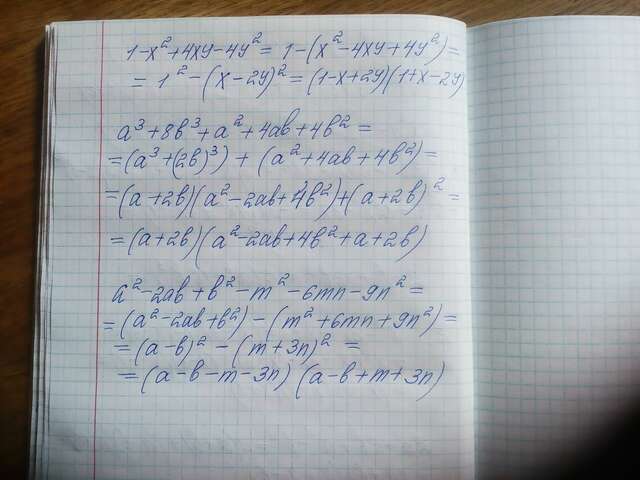 1-x²+4xy-4y² = 1-(x²-4xy+4y²)=
= 1² -(x-2y)² = (1-x+2y)(1+x-2y)
a³+8b³+a²+4ab+4b² =
=(a³+(2b)³) + (a²+4ab+4b²)=
=(a+2b)(a²-2ab+4b²)+(a+2b)² =
=(a+2b)(a²-2ab+4b²+a+2b)
a²-2ab+b²-m²-6mn-9n² =
=(a²-2ab+b²)-(m²+6mn+9n²)=
=(a-b)²-(m+3n)² =
=(a-b-m-3n)(a-b+m+3n)